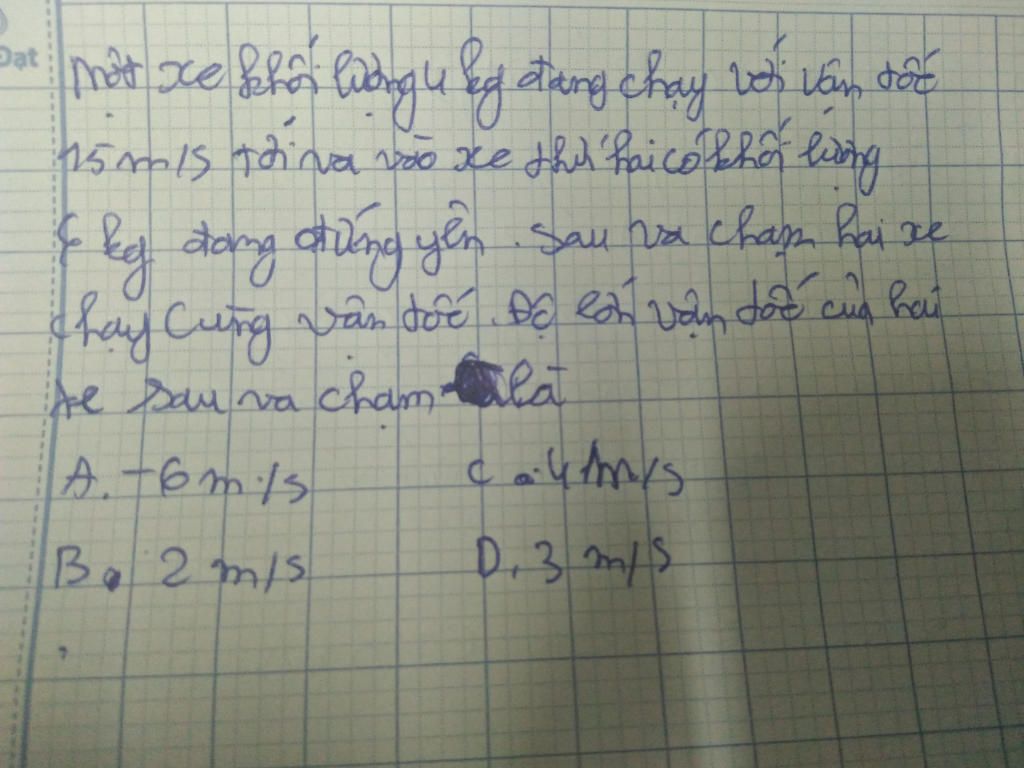 Đạt
Một xe khối lượng 4 kg đang chạy với vận tốc
15 m/s tới va vào xe thứ hai có khối lượng
kg đang đứng yên. Sau va chạm hai xe
chạy cùng vận tốc. Độ lớn vận tốc của hai
xe sau va chạm là
A. -6 m/s
C. 4 m/s
B. 2 m/s
D. 3 m/s